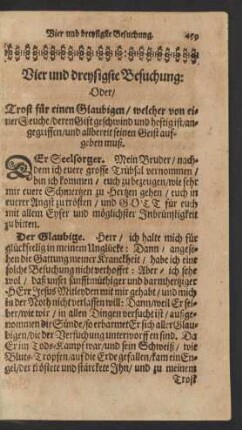 Vier und dreysigste Besuchung. 459
Vier und dreysigste Besuchung:
Oder/
Trost für einen Glaubigen/ welcher von ei-
ner Seuche/ deren Gift geschwind und heftig ist/ an-
gegriffen/ und allbereit seinen Geist auf-
geben muß.
DEr Seelsorger. Mein Bruder/ nach-
dem ich euere grosse Trübsal vernommen/
bin ich kommen/ euch zu bezeugen/ wie sehr
mir euere Schmertzen zu Hertzen gehen/ euch in
euerer Angst zu trösten/ und GOTT für euch
mit allem Eyfer und möglichster Inbrünstigkeit
zu bitten.
Der Glaubige. Herr/ ich halte mich für
glückseelig in meinem Unglücke: Dann/ angese-
hen die Gattung meiner Kranckheit/ habe ich eine
solche Besuchung nicht verhoffet: Aber/ ich sehe
wol/ daß unser sanftmütiger und barmhertziger
HErr Jesus Mitleyden mit mir gehabt/ und mich
in der Noth nicht verlassen will: Dann/ weil Er sel-
ber/ wie wir/ in allen Dingen versucht ist/ aufge-
nommen die Sünde/ so erbarmet Er sich aller Glau-
bigen/ die der Versuchung unterworffen sind. Da
Er im Tods-Kampf war/ und sein Schweiß/ wie
Bluts-Tropfen/ auf die Erde gefallen/ kam ein En-
gel/ der tröstete und stärckete Ihn/ und zu meinem
Trost